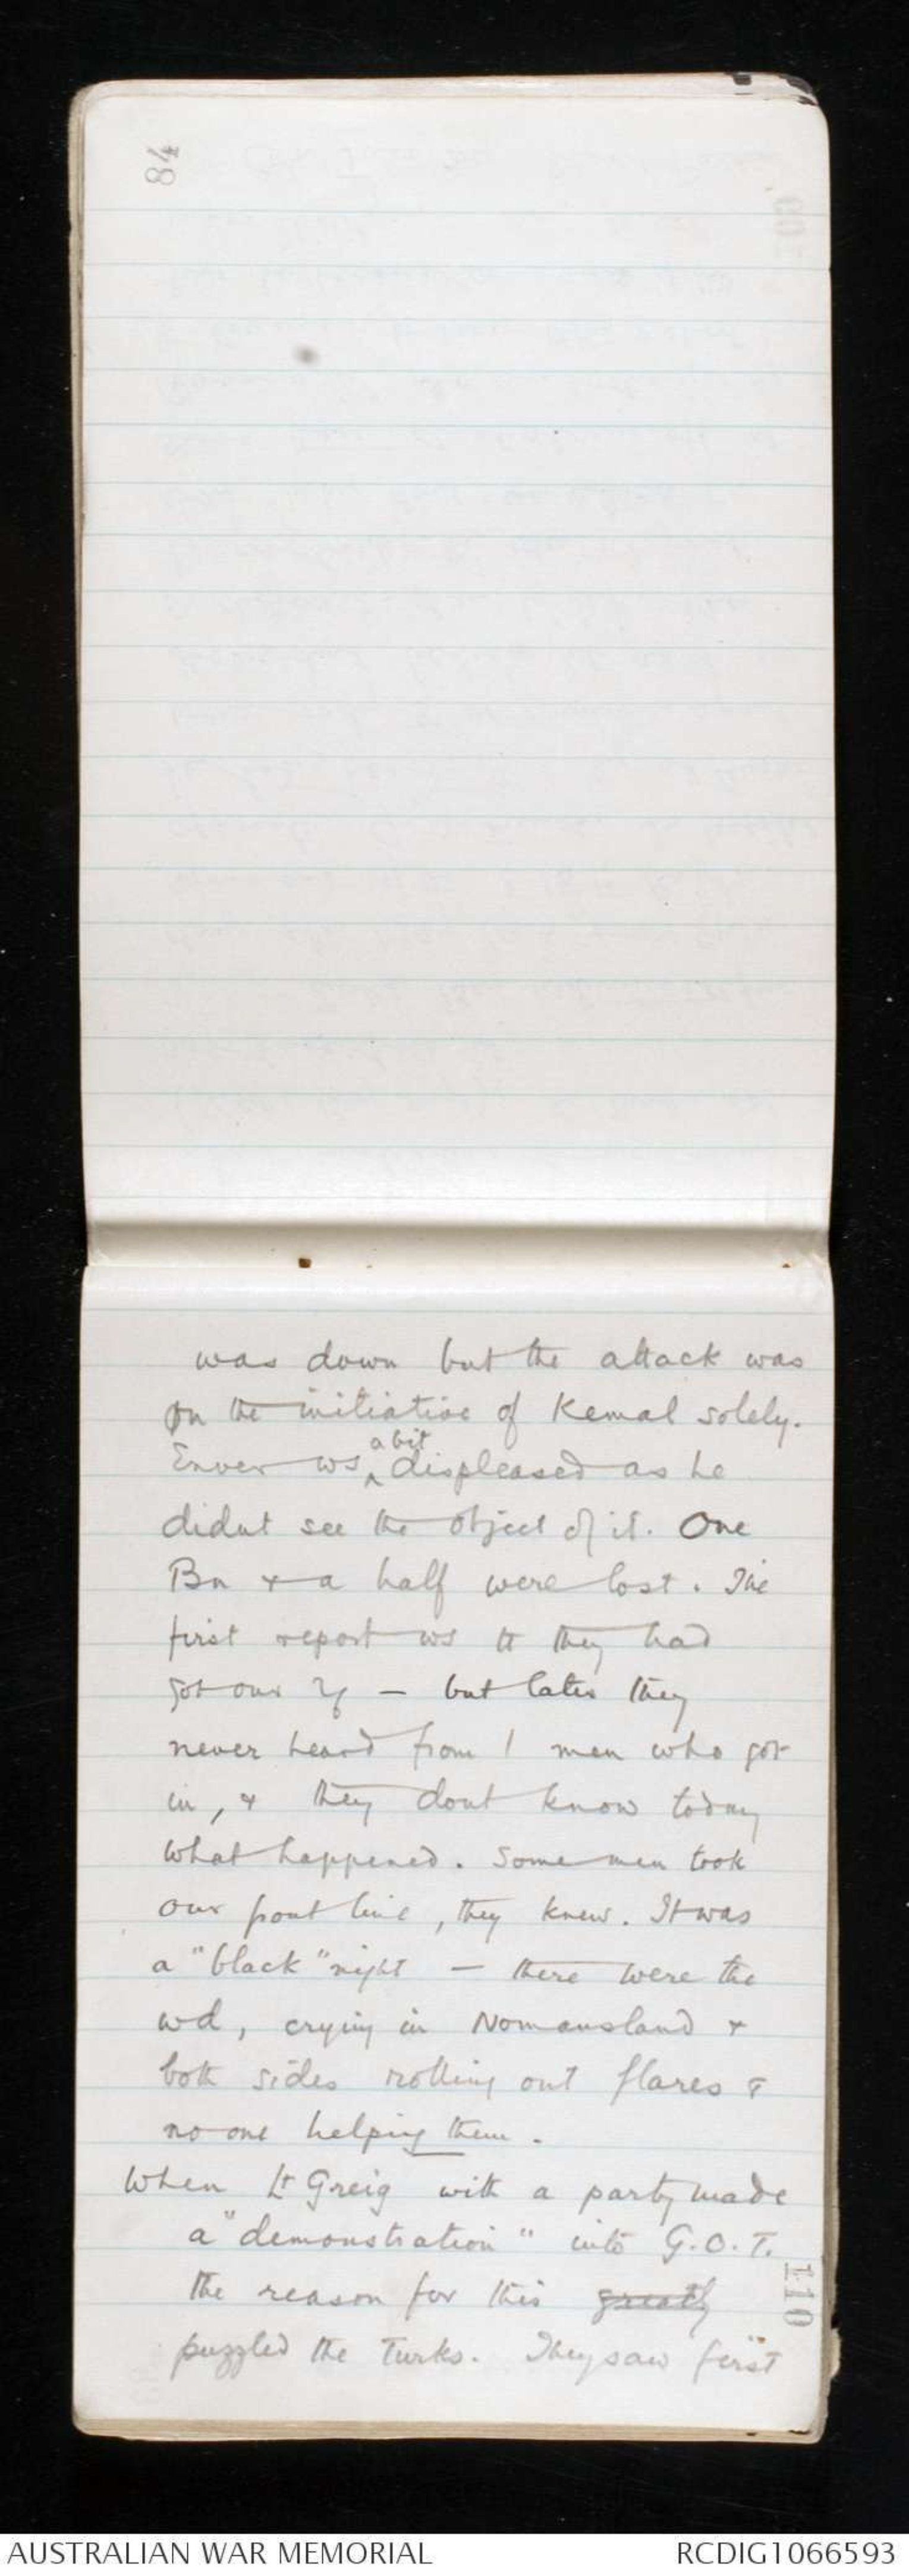 84
was down but the attack was
on the initiative of Kemal solely.
a bit
Enver ws ‸ displeased as he
didnt see the object of it. One
Bn & a half were lost. The
first report ws tt they had
got our - but later they
never heard from 1 man who got
in, & they dont know today
what happened. Some men took
our front line, they knew. It was
a "black" night - there were the
wd, crying in Nomansland &
both sides rolling out flares &
no one helping them.
When Lt Greig with a party made
a "demonstration" into G.O.T.
the reason for this greatly
110
puzzled the Turks. They saw first
AUSTRALIAN WAR MEMORIAL
RCDIG1066593